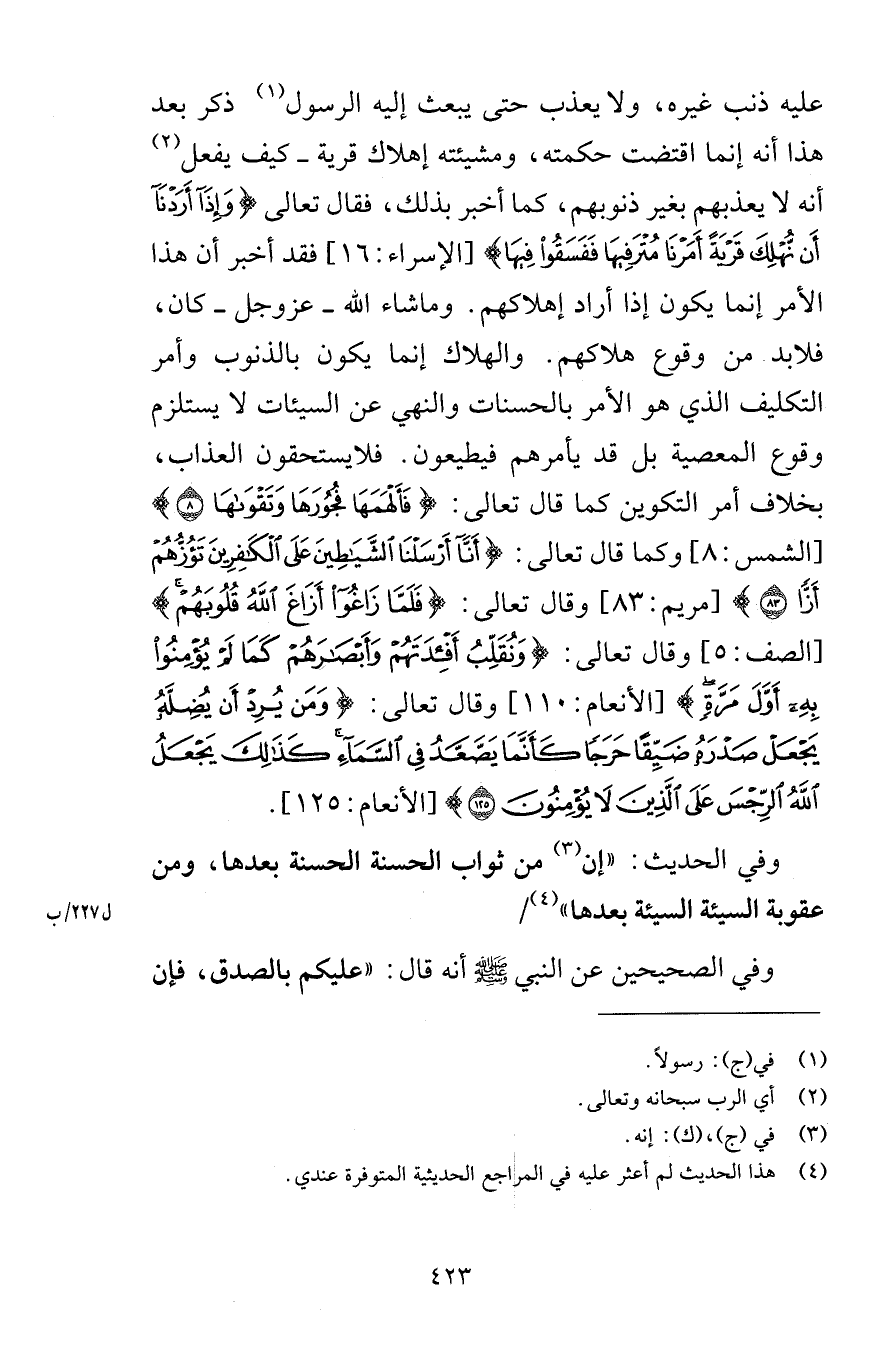 عليه ذنب غيره، ولا يعذب حتى يبعث إليه الرسول(١) ذكر بعد
هذا أنه إنما اقتضت حكمته، ومشيئته إهلاك قرية ـ كيف يفعل(٢)
أنه لا يعذبهم بغير ذنوبهم، كما أخبر بذلك، فقال تعالى ﴿وَإِذَآ أَرَدْنَآ
أَن نُّهْلِكَ قَرْيَةً أَمَرْنَا مُتْرَفِيهَا فَفَسَقُوا۟ فِيهَا﴾ [الإسراء: ١٦] فقد أخبر أن هذا
الأمر إنما يكون إذا أراد إهلاكهم. وماشاء الله ـ عزوجل ـ كان،
فلابد من وقوع هلاكهم. والهلاك إنما يكون بالذنوب وأمر
التكليف الذي هو الأمر بالحسنات والنهي عن السيئات لا يستلزم
وقوع المعصية بل قد يأمرهم فيطيعون. فلايستحقون العذاب،
بخلاف أمر التكوين كما قال تعالى: ﴿فَأَلْهَمَهَا فُجُورَهَا وَتَقْوَىٰهَا ۝٨﴾
[الشمس: ٨] وكما قال تعالى: ﴿أَنَّآ أَرْسَلْنَا ٱلشَّيَـٰطِينَ عَلَى ٱلْكَـٰفِرِينَ تَؤُزُّهُمْ
أَزًّا ۝٨٣﴾ [مريم: ٨٣] وقال تعالى: ﴿فَلَمَّا زَاغُوٓا۟ أَزَاغَ ٱللَّهُ قُلُوبَهُمْ ۚ﴾
[الصف: ٥] وقال تعالى: ﴿وَنُقَلِّبُ أَفْـِٔدَتَهُمْ وَأَبْصَـٰرَهُمْ كَمَا لَمْ يُؤْمِنُوا۟
بِهِۦٓ أَوَّلَ مَرَّةٍ﴾ [الأنعام: ١١٠] وقال تعالى: ﴿وَمَن يُرِدْ أَن يُضِلَّهُۥ
يَجْعَلْ صَدْرَهُۥ ضَيِّقًا حَرَجًا كَأَنَّمَا يَصَّعَّدُ فِى ٱلسَّمَآءِ ۚ كَذَٰلِكَ يَجْعَلُ
ٱللَّهُ ٱلرِّجْسَ عَلَى ٱلَّذِينَ لَا يُؤْمِنُونَ ۝١٢٥﴾ [الأنعام: ١٢٥].
وفي الحديث: «إن(٣) من ثواب الحسنة الحسنة بعدها، ومن
عقوبة السيئة السيئة بعدها»(٤)/
ل٢٢٧/ب
وفي الصحيحين عن النبي ﷺ أنه قال: «عليكم بالصدق، فإن
(١) في(ج): رسولاً.
(٢) أي الرب سبحانه وتعالى.
(٣) في (ج)،(ك): إنه.
(٤) هذا الحديث لم أعثر عليه في المراجع الحديثية المتوفرة عندي.
٤٢٣